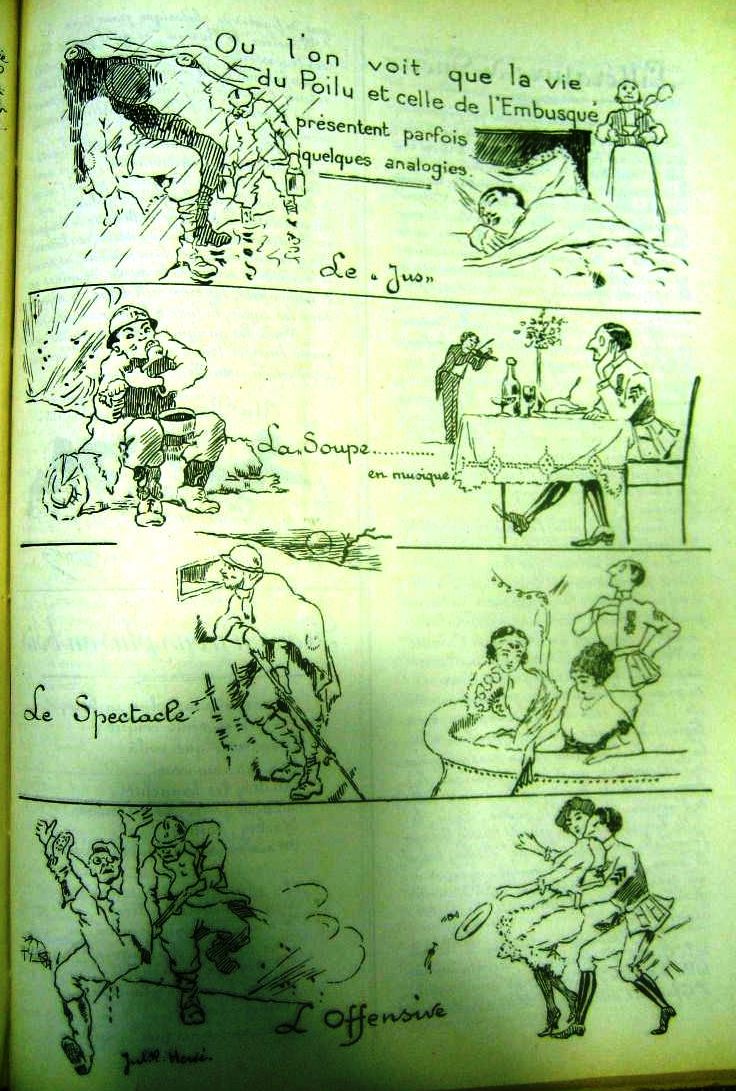 Ou l'on voit que la vie
du Poilu et celle de l'Embusqué
présentent parfois
quelques analogies.
Le "Jus"
La Soupe..........
en musique
Le Spectacle
L'Offensive